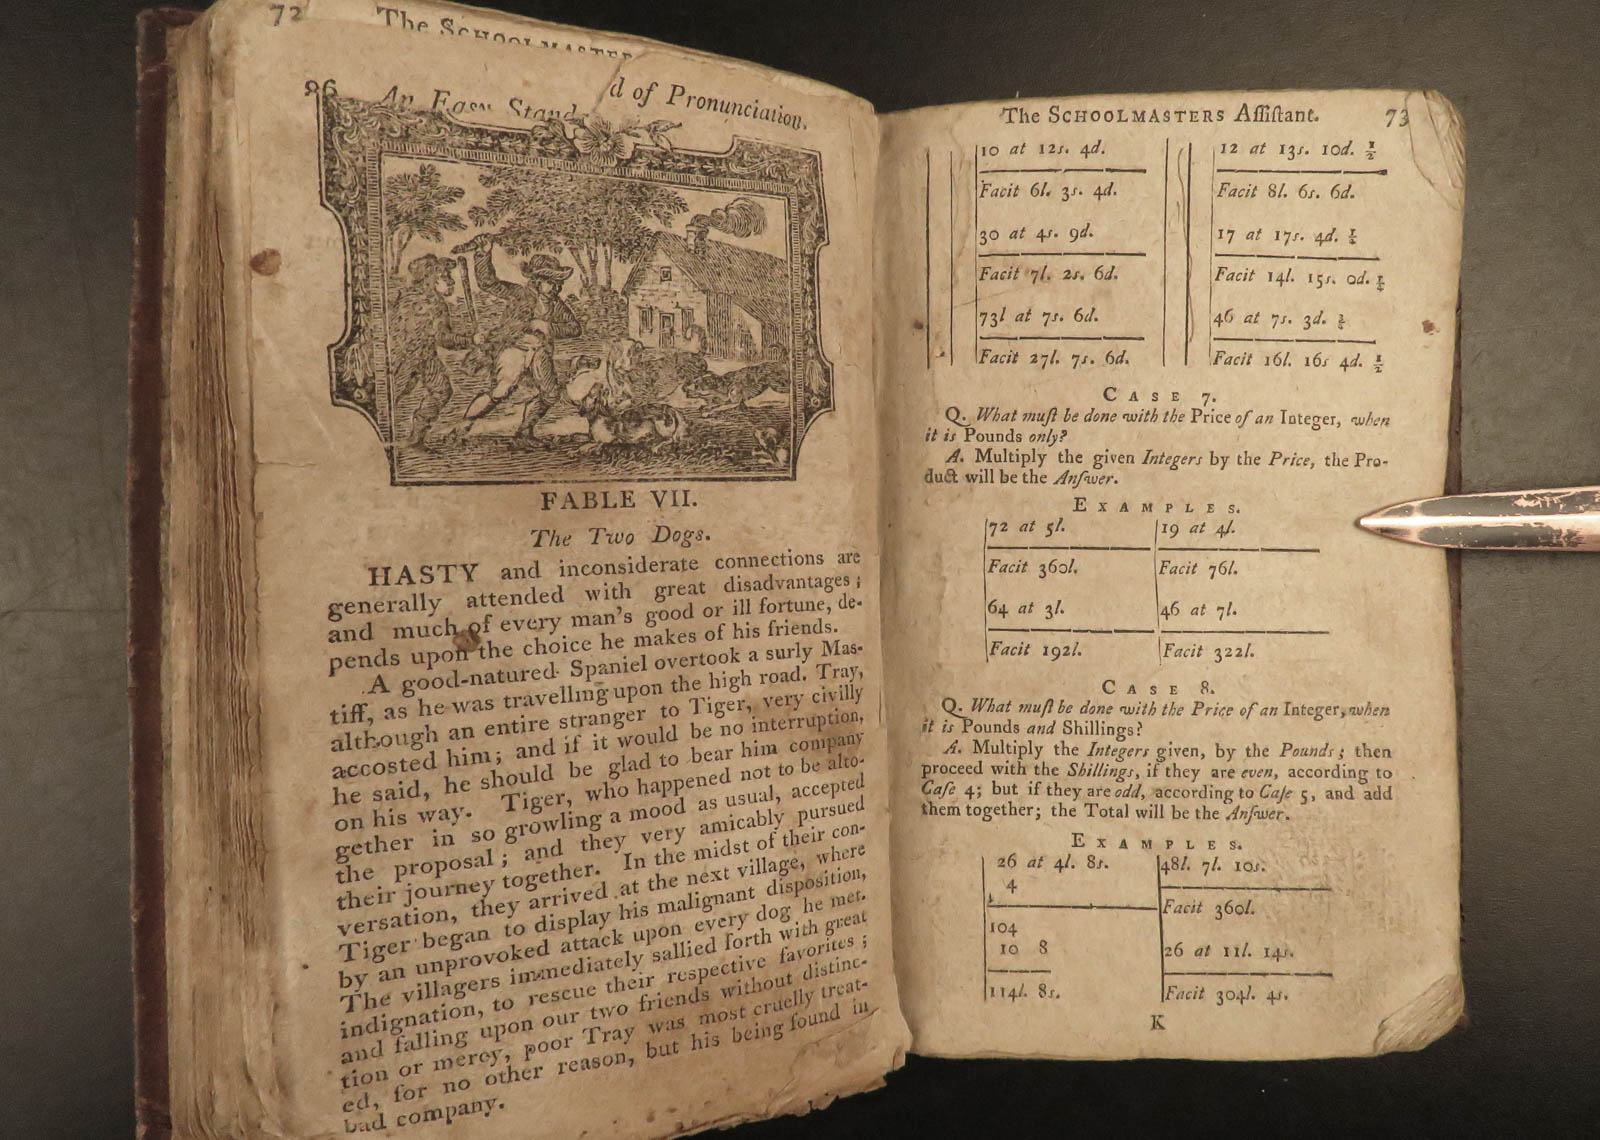 72
The SCHOOLMASTERS
86
An Easy Standard of Pronunciation.
FABLE VII.
The Two Dogs.
HASTY and inconsiderate connections are
generally attended with great disadvantages;
and much of every man's good or ill fortune, de-
pends upon the choice he makes of his friends.
A good-natured Spaniel overtook a surly Mas-
tiff, as he was travelling upon the high road. Tray,
although an entire stranger to Tiger, very civilly
accosted him; and if it would be no interruption,
he said, he should be glad to bear him company
on his way. Tiger, who happened not to be alto-
gether in so growling a mood as usual, accepted
the proposal; and they very amicably pursued
their journey together. In the midst of their con-
versation, they arrived at the next village, where
Tiger began to display his malignant disposition,
by an unprovoked attack upon every dog he met.
The villagers immediately sallied forth with great
indignation, to rescue their respective favorites;
and falling upon our two friends without distinc-
tion or mercy, poor Tray was most cruelly treat-
ed, for no other reason, but his being found in
bad company.
The SCHOOLMASTERS Aſſiſtant. 73
10 at 12s. 4d.
Facit 6l. 3s. 4d.
30 at 4s. 9d.
Facit 7l. 2s. 6d.
73l at 7s. 6d.
Facit 27l. 7s. 6d.
12 at 13s. 10d. ½
Facit 8l. 6s. 6d.
17 at 17s. 4d. ¼
Facit 14l. 15s. 0d. ¼
46 at 7s. 3d. ¾
Facit 16l. 16s 4d. ½
CASE 7.
Q. What muſt be done with the Price of an Integer, when
it is Pounds only?
A. Multiply the given Integers by the Price, the Pro-
duct will be the Anſwer.
EXAMPLES.
72 at 5l.
Facit 360l.
64 at 3l.
Facit 192l.
19 at 4l.
Facit 76l.
46 at 7l.
Facit 322l.
CASE 8.
Q. What muſt be done with the Price of an Integer, when
it is Pounds and Shillings?
A. Multiply the Integers given, by the Pounds; then
proceed with the Shillings, if they are even, according to
Caſe 4; but if they are odd, according to Caſe 5, and add
them together; the Total will be the Anſwer.
EXAMPLES.
26 at 4l. 8s.
4
104
10 8
114l. 8s.
48l. 7l. 10s.
Facit 360l.
26 at 11l. 14s.
Facit 304l. 4s.
K